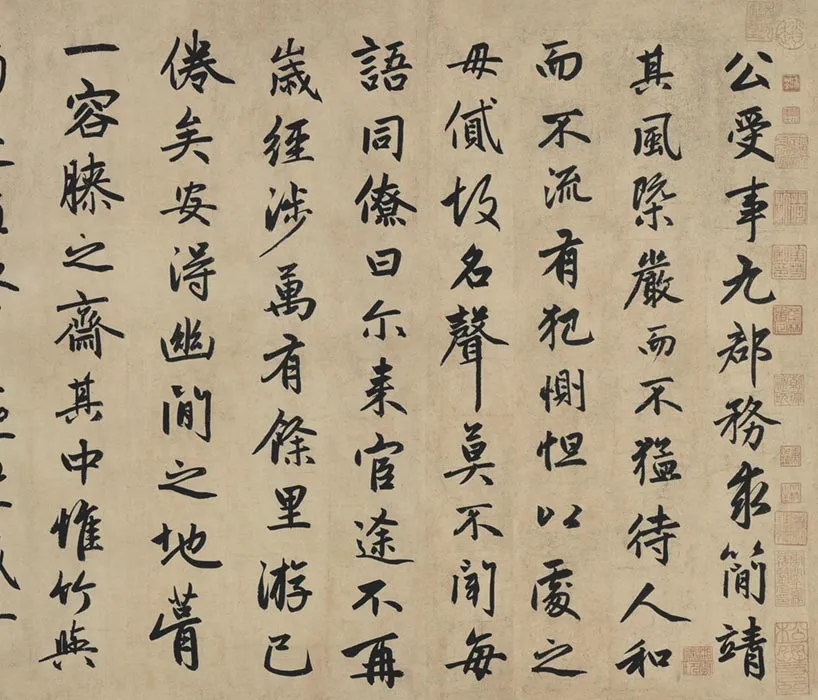 公受事九郡務求簡靖
其風槩嚴而不猛待人和
而不流有犯惻怛以處之
毋貸故名聲莫不聞每
語同僚曰尔来官途不再
歲經涉萬有餘里游已
倦矣安得幽閒之地葺
一容膝之齋其中惟竹與